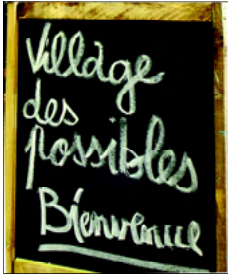 Village
des
possibles
Bienvenue